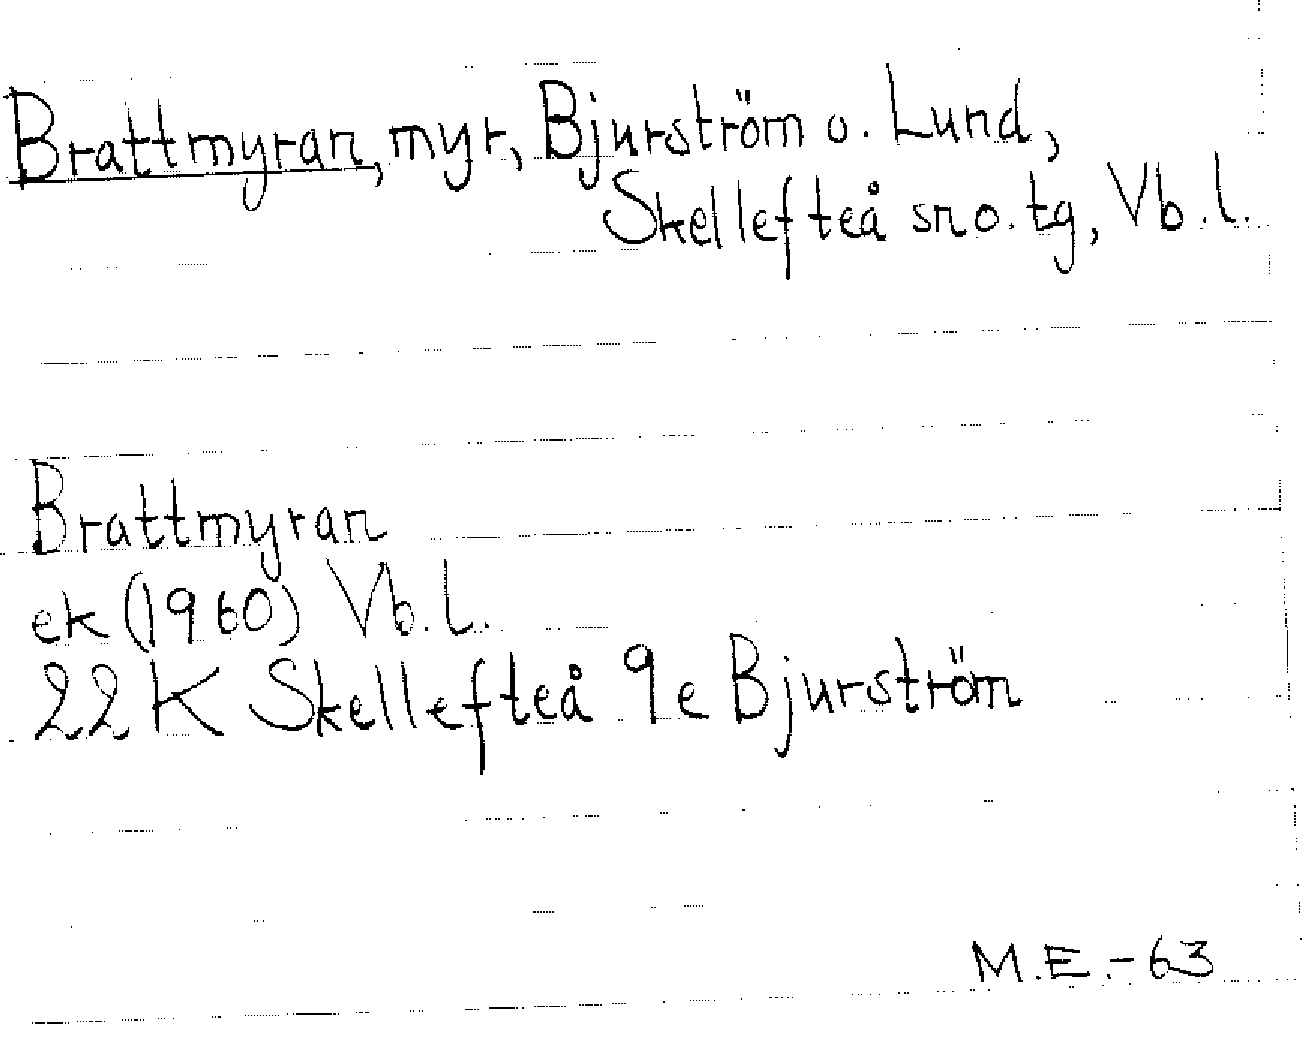 Brattmyran, myr, Bjurström o. Lund,
Skellefteå sn o. tg, Vb. l.
Brattmyran
ek (1960) Vb. L.
22 K Skellefteå 9e Bjurström
M.E.-63